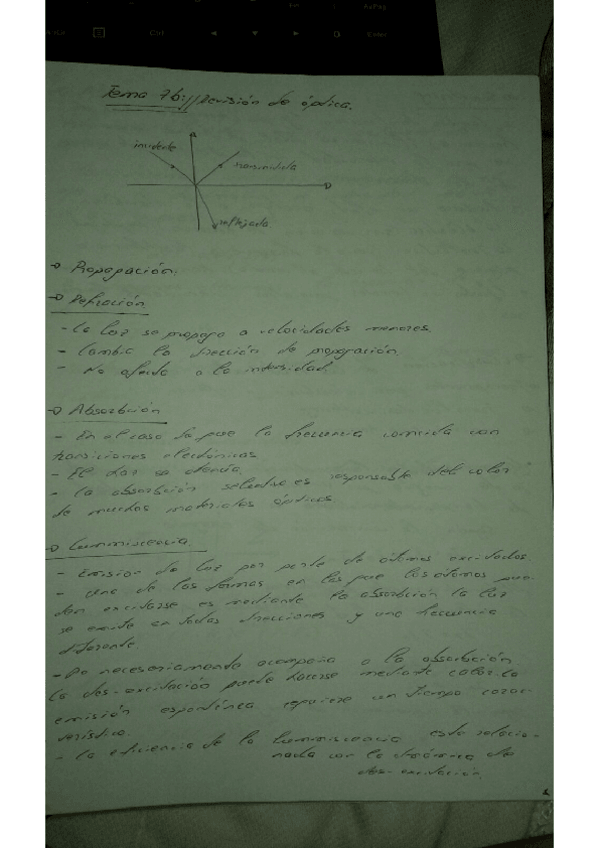 Tema 7b: // Revisión de óptica.
incidente
transmitida
reflejada
→ Propagación:
→ Refración
- La luz se propaga a velocidades menores.
- Cambia la dirección de propagación.
- No afecta a la intensidad
→ Absorbción
- En el caso de que la frecuencia coincida con
transiciones electrónicas
- El haz se atenúa.
- La absorbción selectiva es responsable del color
de muchos materiales ópticos
→ Lumniscencia
- Emisión de luz por parte de átomos excitados
- Una de las formas en las que los átomos pue-
den excitarse es mediante la absorbción la luz
se emite en todas direcciones y una frecuencia
diferente
- No necesariamente acompaña a la absorbción
la des-excitación puede hacerse mediante calor. La
emisión espontánea requiere un tiempo carac-
terístico.
- La eficiencia de la lumniscencia esta relacio-
nada con la dinámica de
des-excitación.